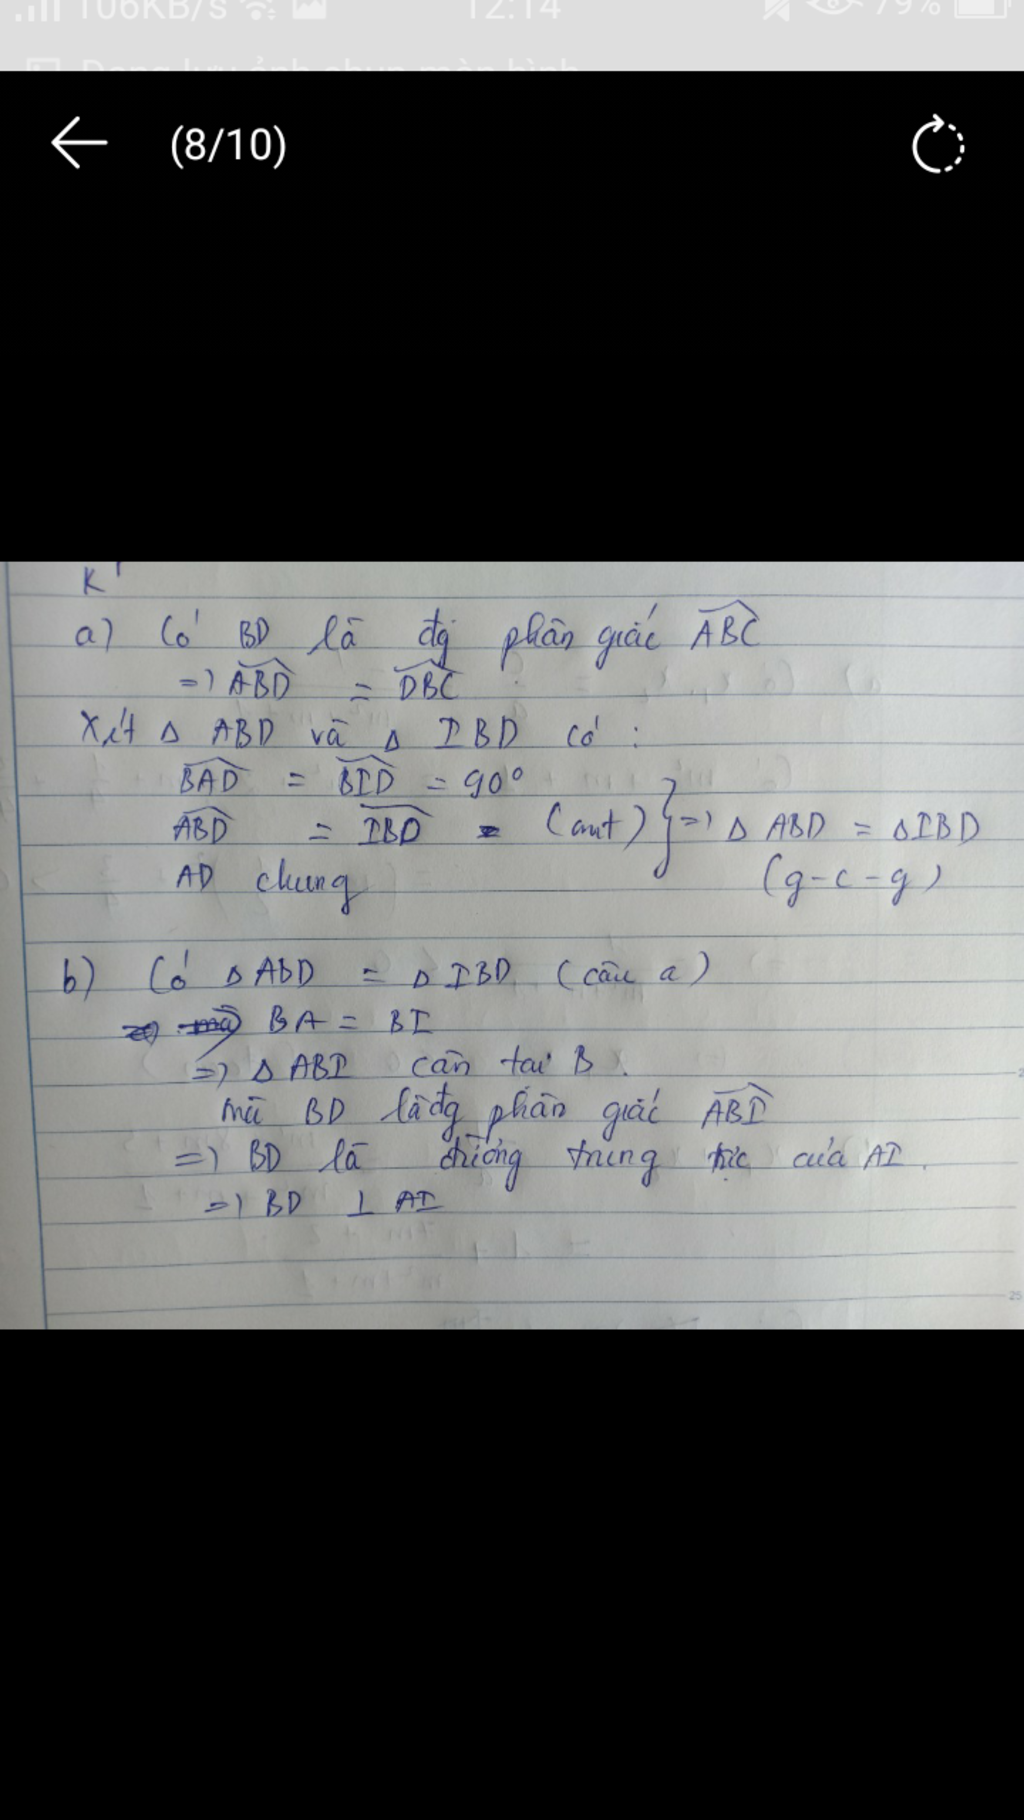 106KB/s 12:14 79%
Đang lưu ảnh chụp màn hình
(8/10)
K
a) Có BD là đg phân giác ABC
=> ABD = DBC
Xét Δ ABD và Δ IBD có :
BAD = BID = 90°
ABD = IBD (cmt) } => Δ ABD = Δ IBD
AD chung (g-c-g)
b) Có Δ ABD = Δ IBD (câu a)
BA = BI
=> Δ ABI cân tại B.
mà BD là đg phân giác ABI
=> BD là đường trung trực của AI.
=> BD ⊥ AI
25